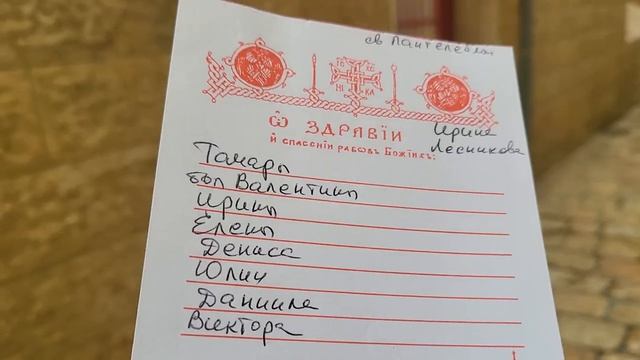 св Пантелеймон
ІС ХС
НИ КА
Ѡ ЗДРАВЇИ
Й СПАСЕНЇИ РАБОВЪ БОЖЇИХЪ:
Ирина
Лесникова
Тамары
бол Валентины
Ирины
Елены
Дениса
Юлии
Даниила
Виктора